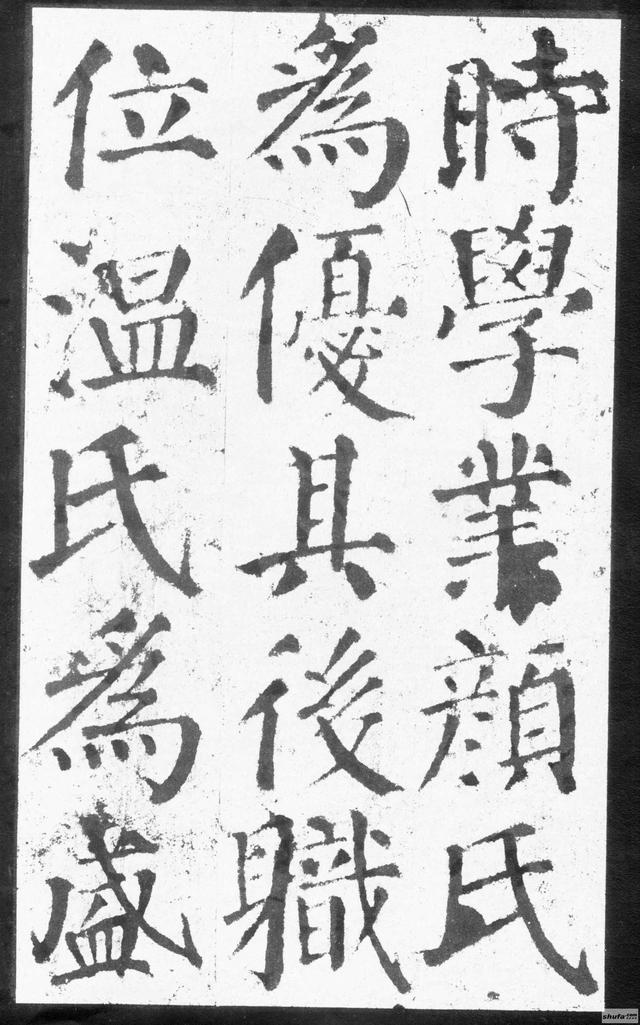 時學業顏氏
為優其後職
位温氏為盛
shufa